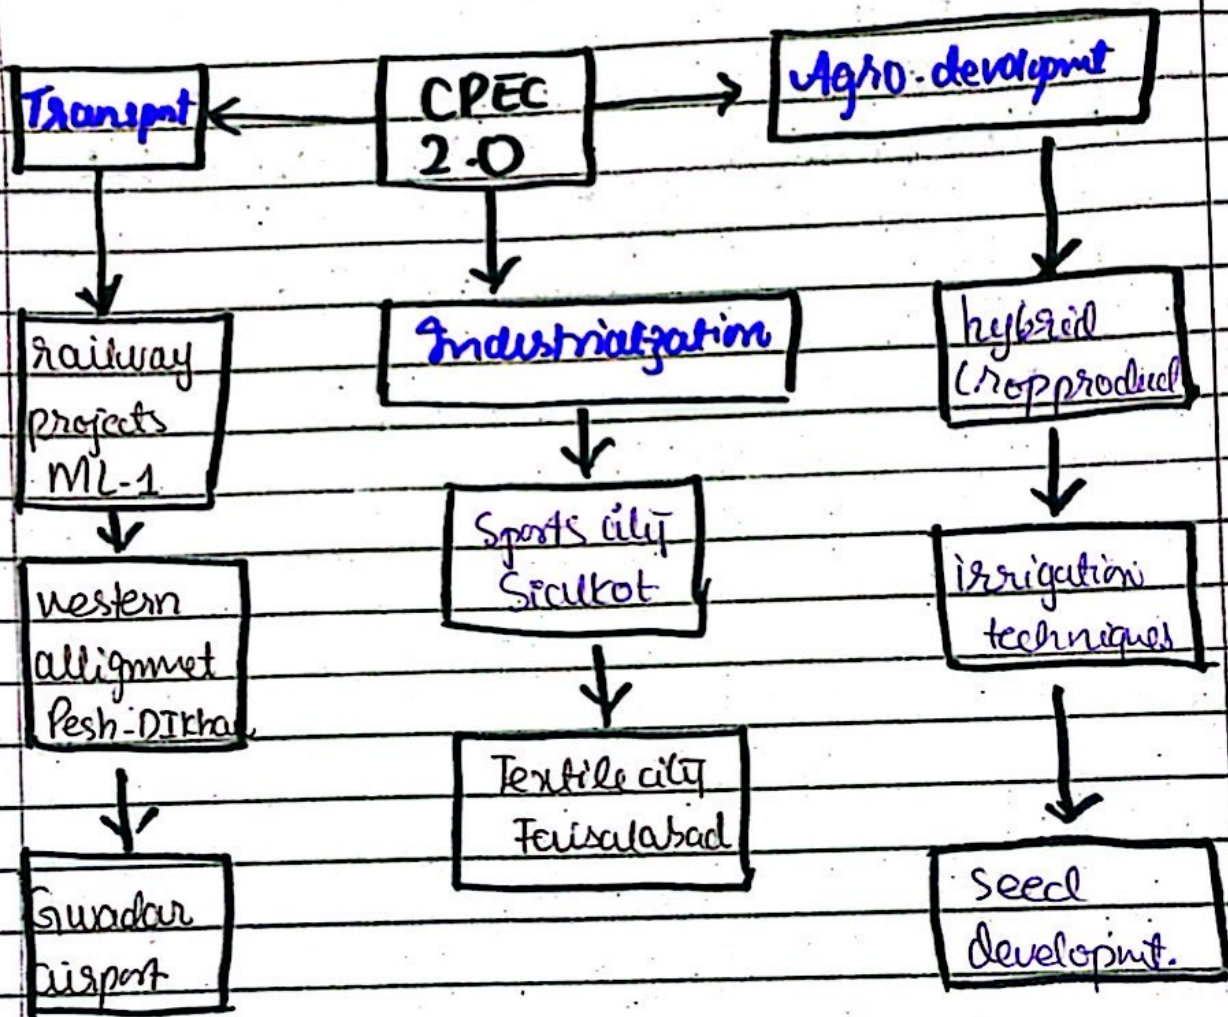 Transpnt
CPEC
2.0
Agro-develpmt
railway
projects
ML-1
western
allignmet
Pesh-DIKhan
Gwadar
airport
Industrialization
Sports city
Sialkot
Textile city
Faisalabad
hybrid
crop product
irrigation
techniques
seed
developmt.